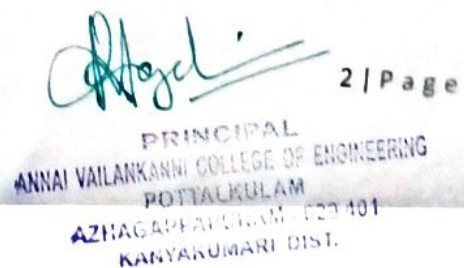 2 | Page
PRINCIPAL
ANNAI VAILANKANNI COLLEGE OF ENGINEERING
POTTALKULAM
AZHAGAPPAPURAM - 629 401
KANYAKUMARI DIST.